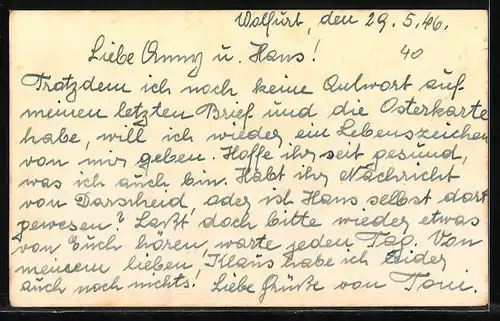 Wolfurt, den 29.5.46.
Liebe Anny u. Hans! 40
Trotzdem ich noch keine Antwort auf
meinen letzten Brief und die Osterkarte
habe, will ich wieder ein Lebenszeichen
von mir geben. Hoffe ihr seit gesund,
was ich auch bin. Habt ihr Nachricht
von Darscheid oder ist Hans selbst dort
gewesen? Laßt doch bitte wieder etwas
von Euch hören, warte jeden Tag. Von
meinem lieben Klaus habe ich leider
auch noch nichts! Liebe Grüße von Toni.